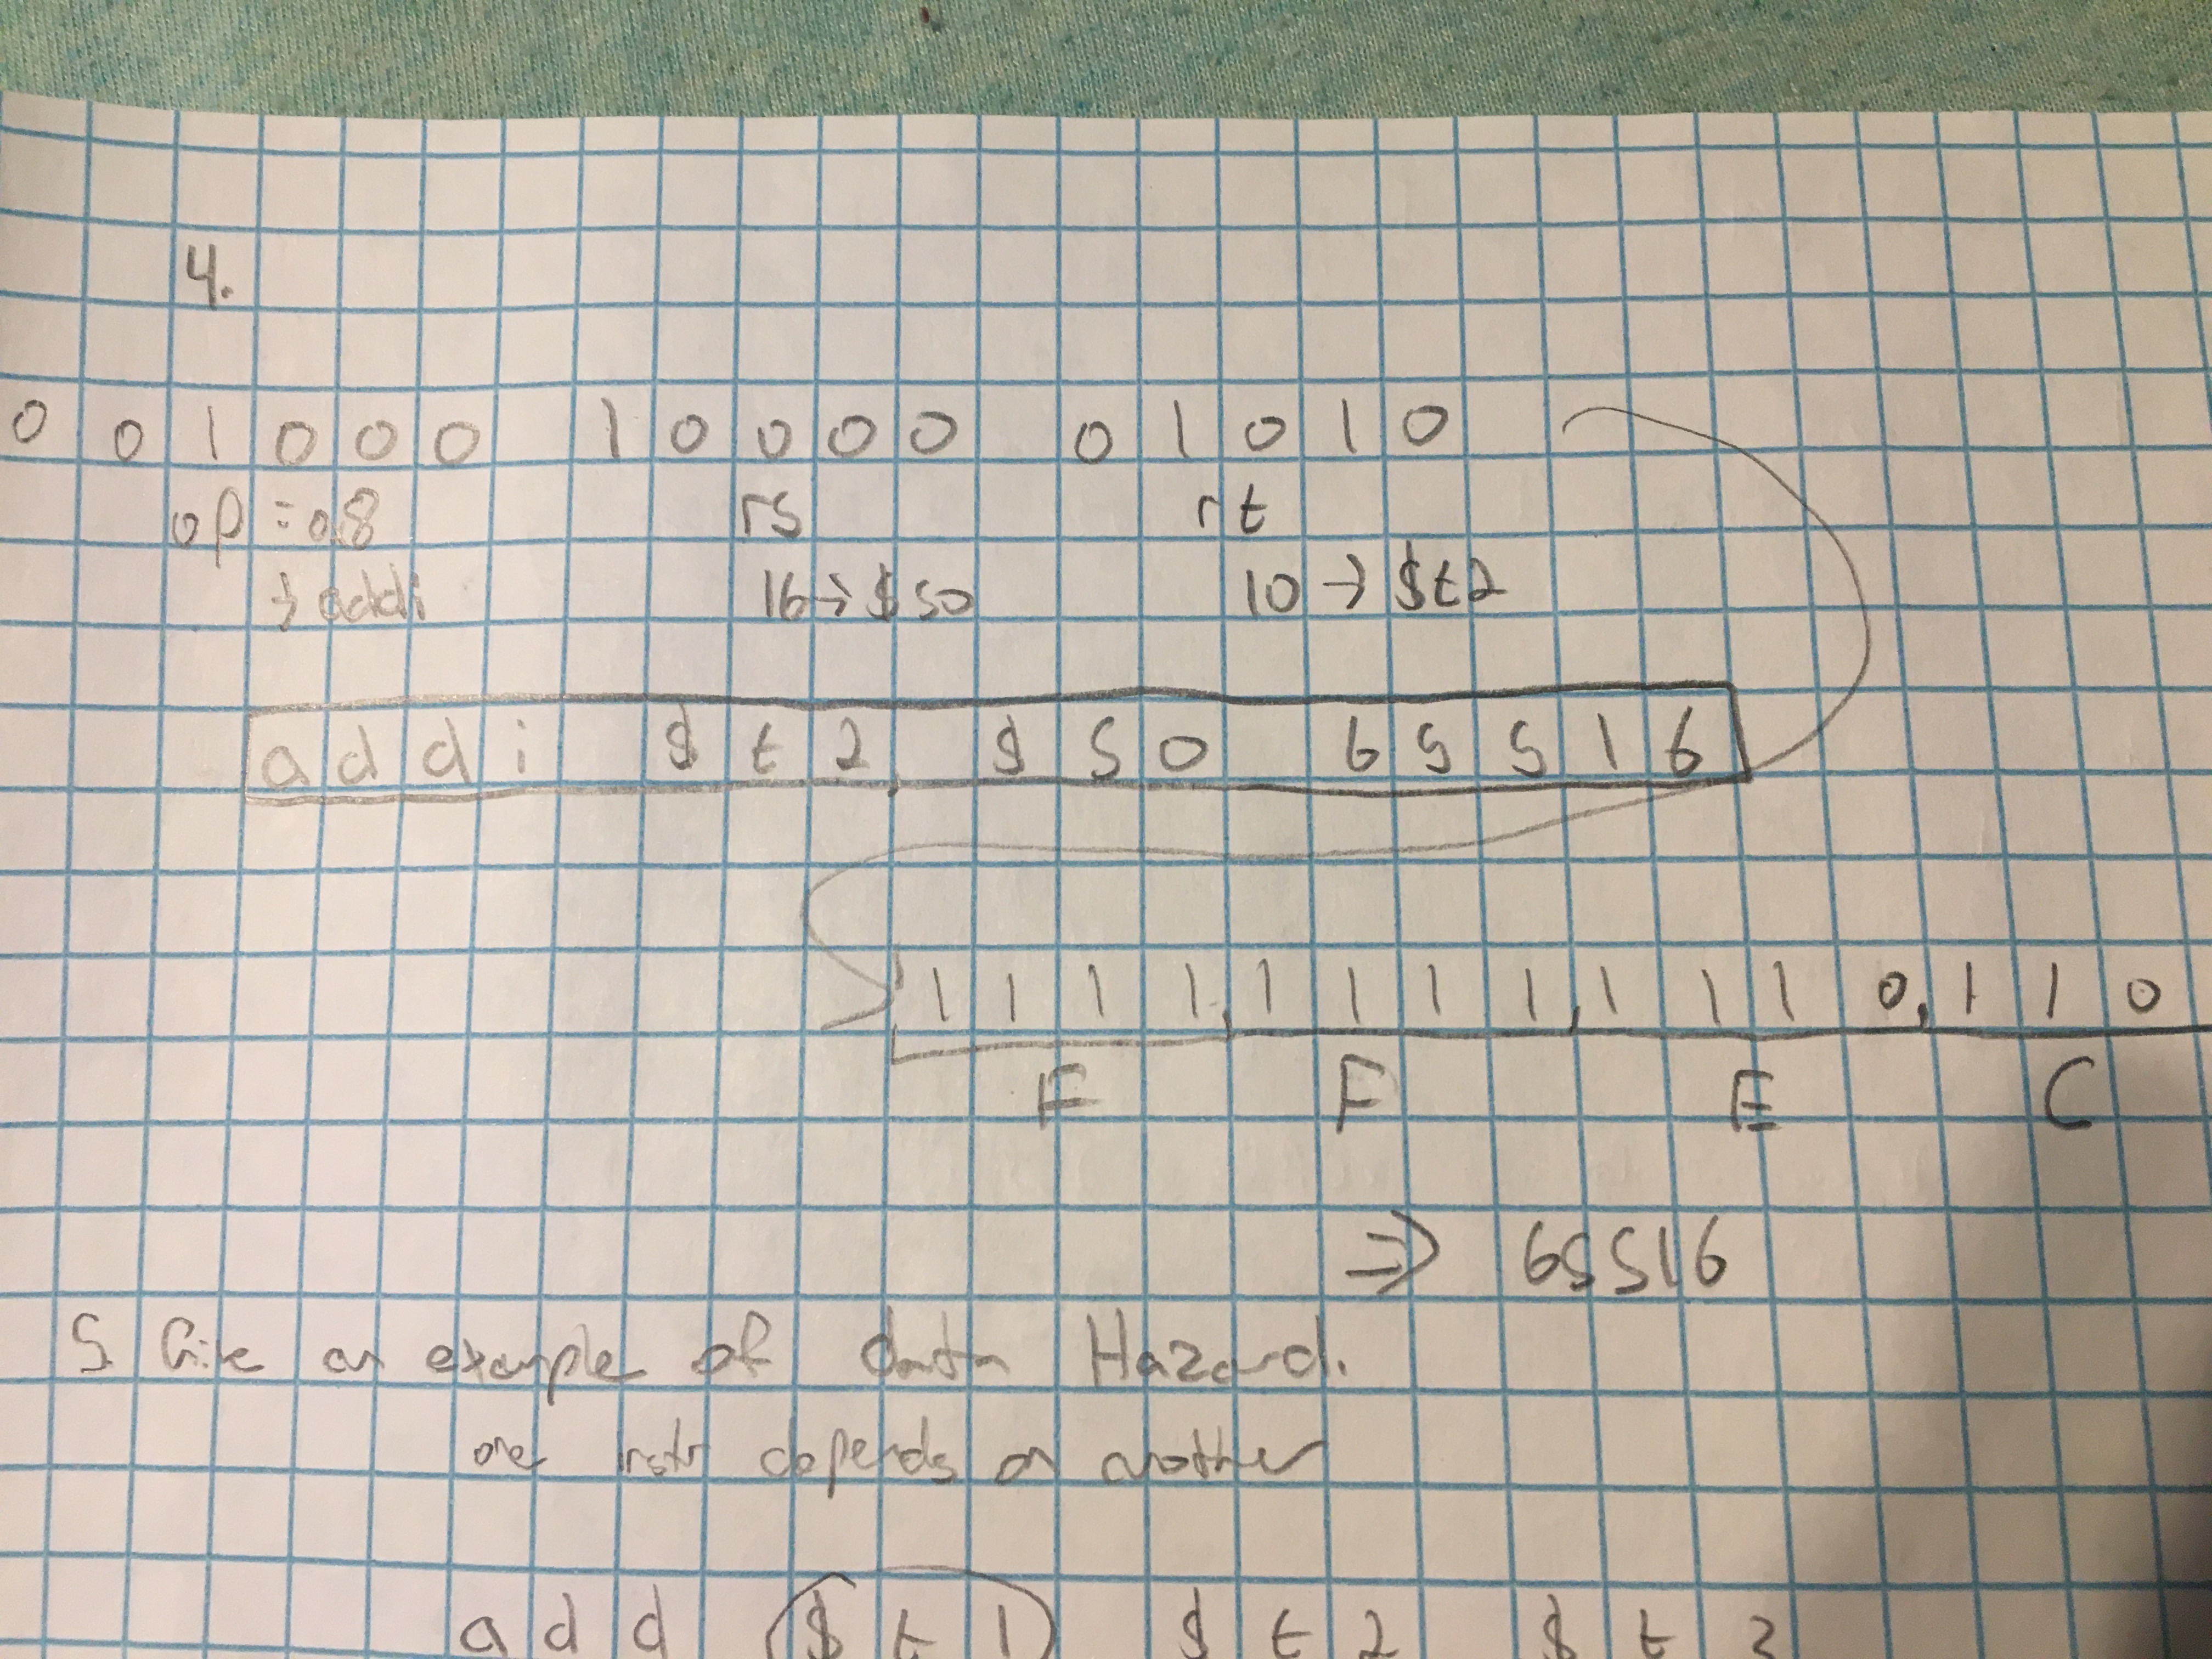 4.
0 0 1 0 0 0 1 0 0 0 0 0 1 0 1 0
op = 08 rs rt
↳ addi 16→$s0 10→$t2
addi $t2 $s0 65516
1 1 1 1 1 1 1 1 1 1 1 0 1 1 0
F F E C
⇒ 65516
5. Give an example of data Hazard.
one instr depends on another
add $t1 $t2 $t3